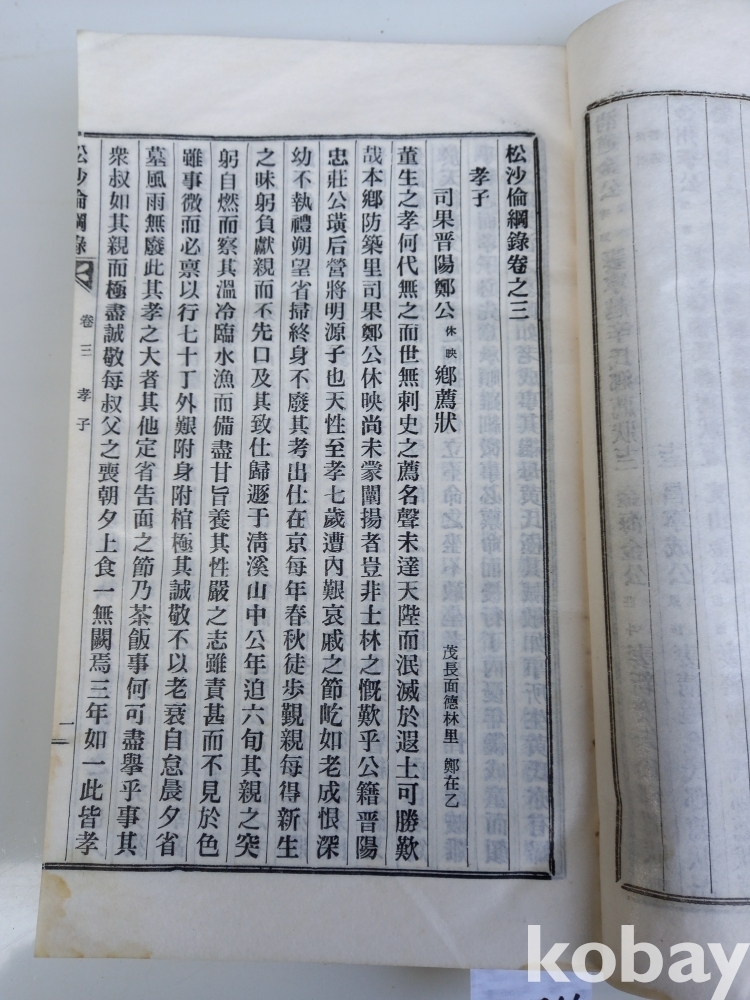 松沙倫綱錄卷之三
孝子
司果晋陽鄭公休映鄕薦狀 茂長面德林里 鄭在乙
董生之孝何代無之而世無刺史之薦名聲未達天陛而泯滅於遐土可勝歎
哉本鄕防築里司果鄭公休映尚未蒙闡揚者豈非士林之慨歎乎公籍晋陽
忠莊公璜后營將明源子也天性至孝七歲遭內艱哀戚之節屹如老成恨深
幼不執禮朔望省掃終身不廢其考出仕在京每年春秋徒步覲親每得新生
之味躬負獻親而不先口及其致仕歸遯于淸溪山中公年迫六旬其親之突
躬自燃而察其溫冷臨水漁而備盡甘旨養其性嚴之志雖責甚而不見於色
雖事微而必禀以行七十丁外艱附身附棺極其誠敬不以老衰自怠晨夕省
墓風雨無廢此其孝之大者其他定省告面之節乃茶飯事何可盡擧乎事其
衆叔如其親而極盡誠敬每叔父之喪朝夕上食一無闕焉三年如一此皆孝
松沙倫綱錄 卷三 孝子 一
kobay